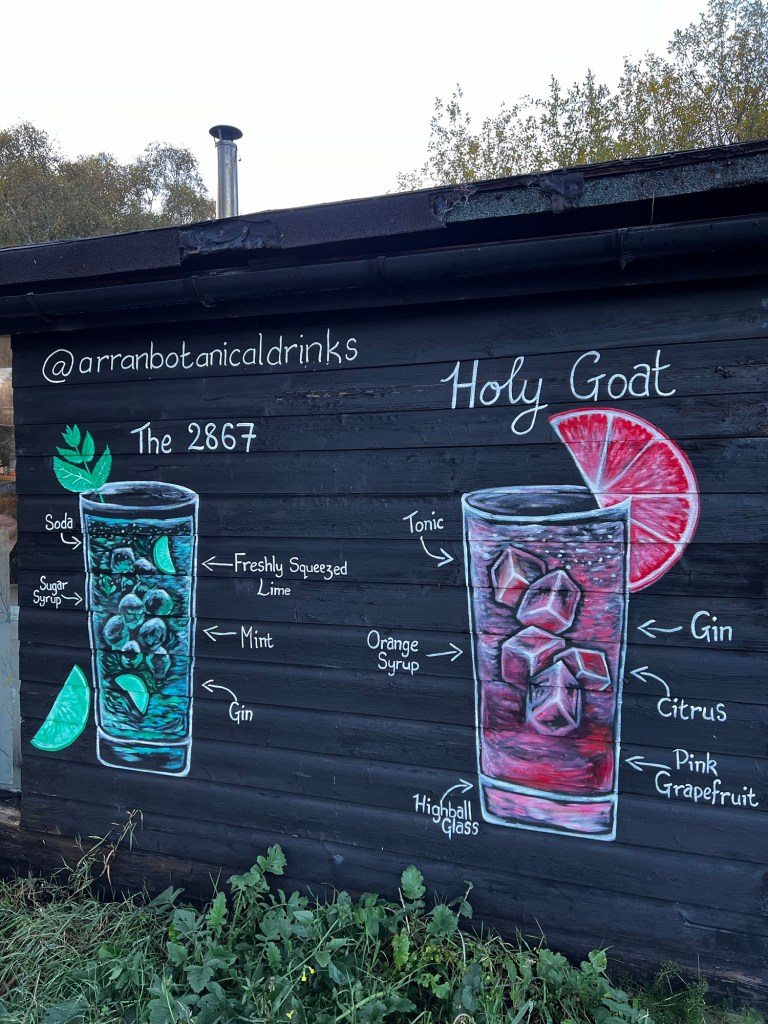 @arranbotanicaldrinks
The 2867
Soda
Sugar
Syrup
Freshly Squeezed
Lime
Mint
Gin
Holy Goat
Tonic
Orange
Syrup
Highball
Glass
Gin
Citrus
Pink
Grapefruit